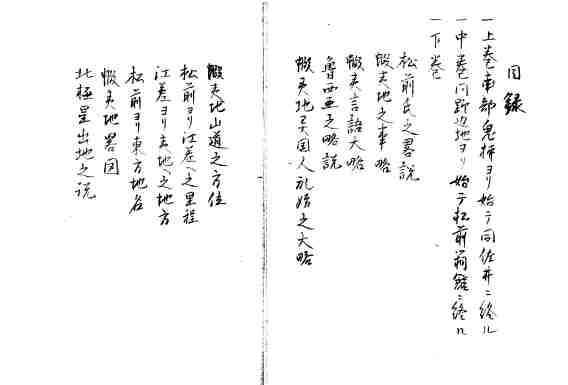 目録
一上巻南部鬼排ヨリ始テ同佐井ニ終ル
一中巻同野辺地ヨリ始テ松前箱館ニ終ル
一下巻
松前氏之畧説
蝦夷地之事略
蝦夷言語大略
魯西亜之略説
蝦夷地異国人礼始之大略
蝦夷地山道之方位
松前ヨリ江差ヘ之里程
江差ヨリ夷地ヘ之地方
松前ヨリ東方地名
蝦夷地畧図
北極星出地之说